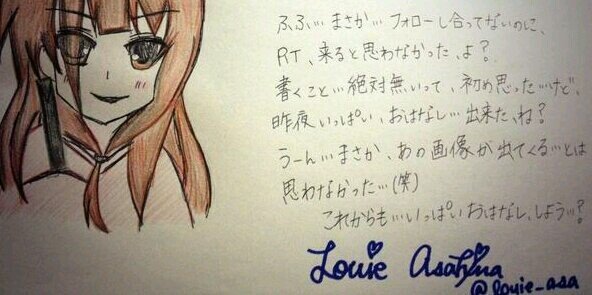 ふふ…まさか…フォローし合ってないのに、
RT、来ると思わなかった、よ?
書くこと…絶対無いって、初め思った…けど、
昨夜いっぱい、おはなし…出来た、ね?
うーん…まさか、あの画像が出てくる…とは
思わなかった…(笑)
これからも…いっぱいおはなし、しよう…?
Louie Asahina
@louie_asa